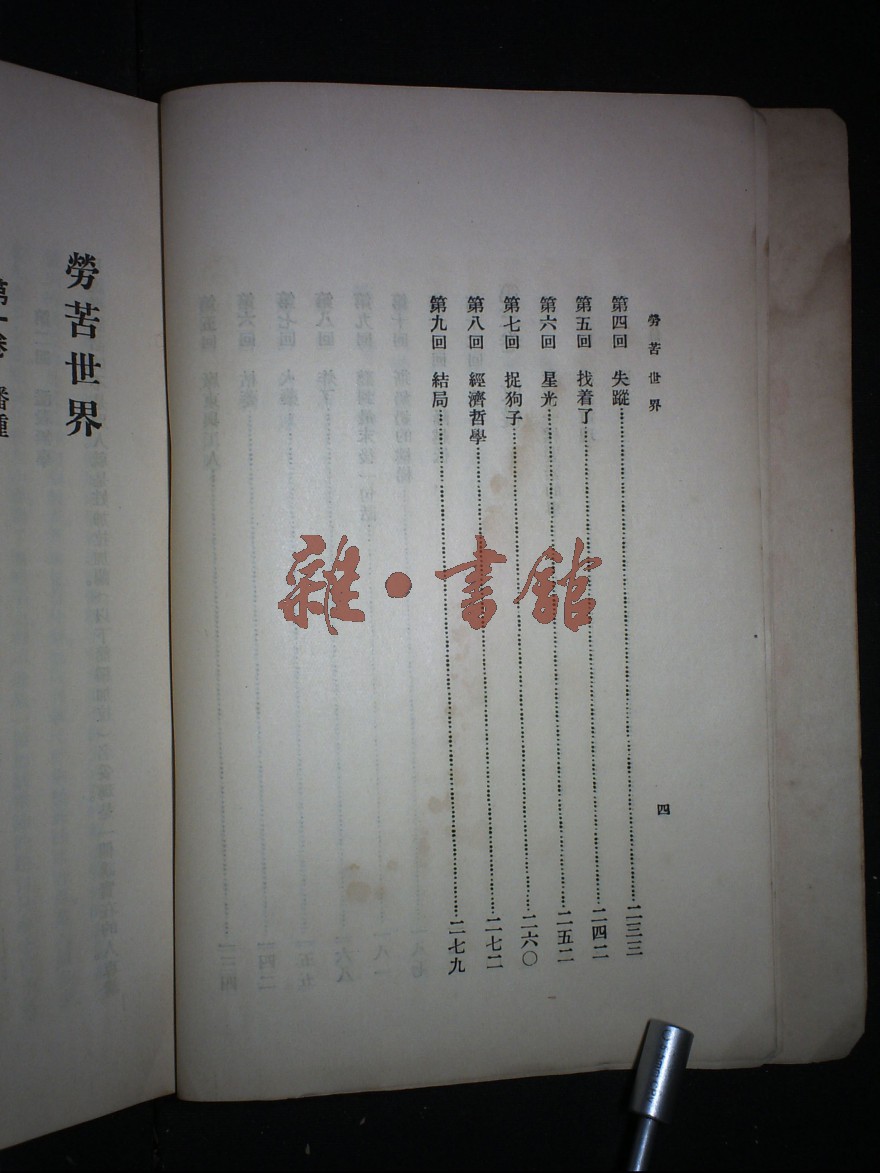 勞苦世界
第四回 失蹤……二三三
第五回 找着了……二四二
第六回 星光……二五二
第七回 捉狗子……二六〇
第八回 經濟哲學……二七二
第九回 結局……二七九
四
勞苦世界
第一卷 播種
雜·書館